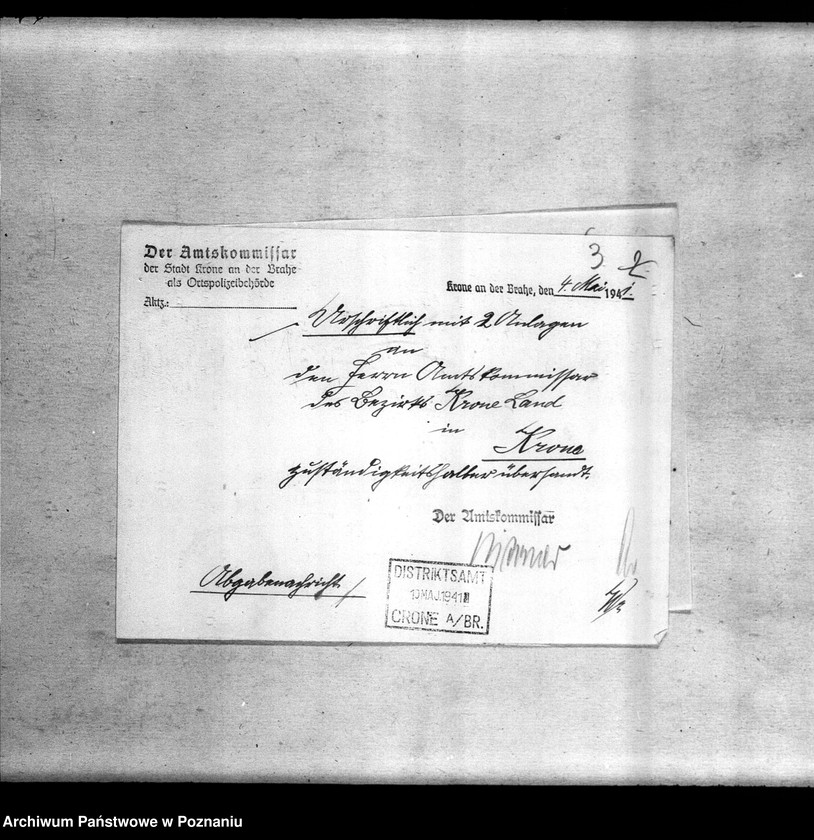 3
Der Amtskommissar
der Stadt Krone an der Brahe
als Ortspolizeibehörde
Aktz.:
Krone an der Brahe, den 4. Mai 1941.
Urschriftlich mit 2 Anlagen
an
den Herrn Amtskommissar
des Bezirks Krone Land
in
Krone
zuständigkeitshalber übersandt.
Der Amtskommissar
Abgabenachricht
DISTRIKTSAMT
10 MAJ 1941
CRONE A/BR.
Archiwum Państwowe w Poznaniu